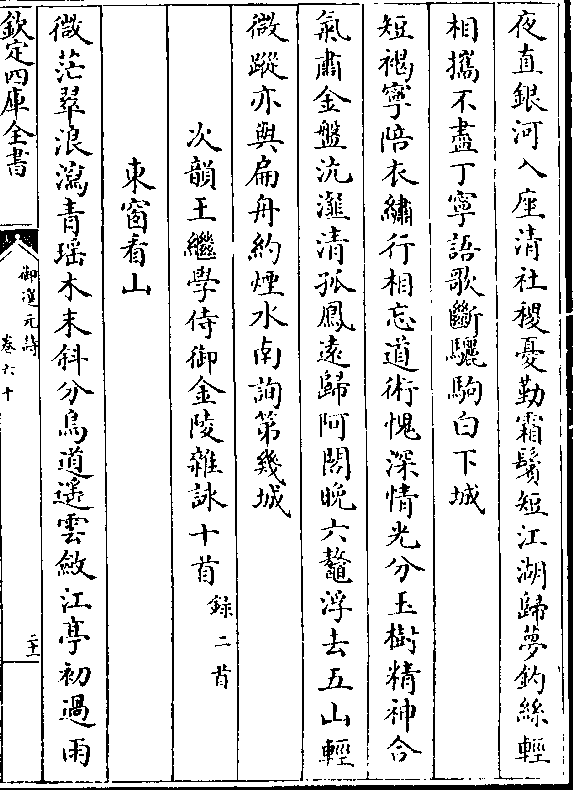 夜直銀河入座清社稷憂勤霜鬢短江湖歸夢釣絲輕
相攜不盡丁寧語歌斷驪駒白下城
短褐寧陪衣繡行相忘道術愧深情光分玉樹精神合
氣肅金盤沆瀣清孤鳳遠歸阿閣晚六鼇浮去五山輕
微蹤亦與扁舟約煙水南詢第幾城
次韻王繼學侍御金陵雜詠十首錄二首
東窗看山
微茫翠浪瀉青瑤木末斜分鳥道遥雲斂江亭初過雨
欽定四庫全書
御選元詩
卷六十
二十一